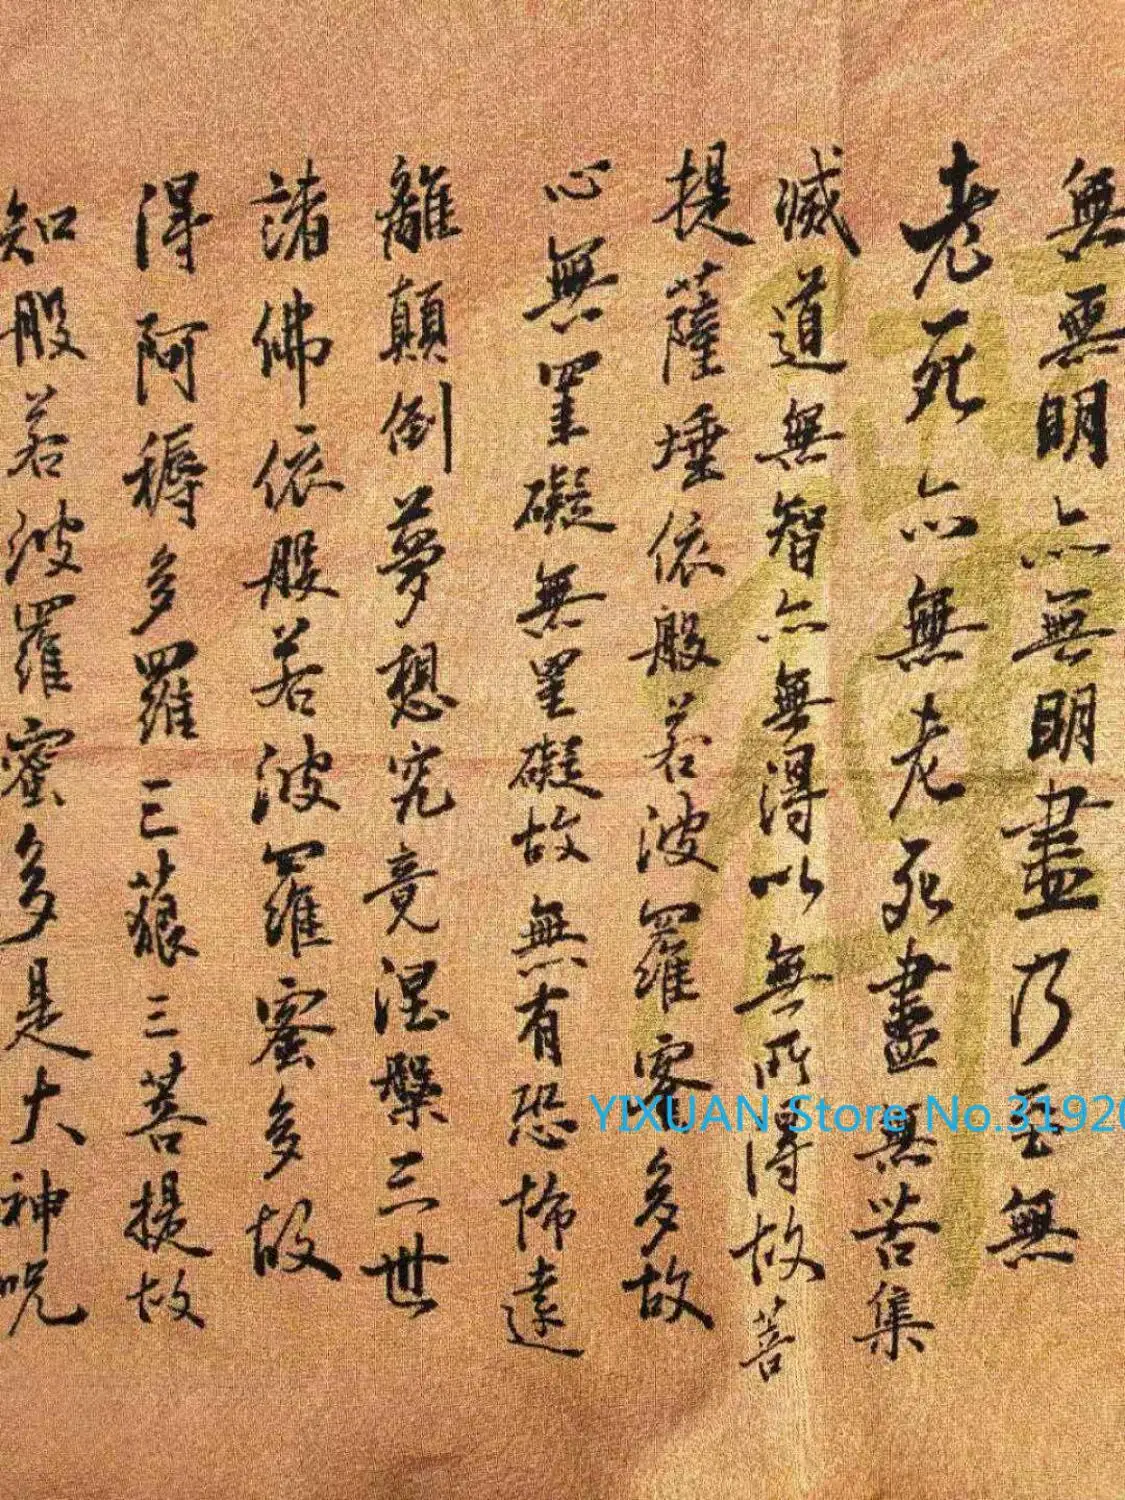 無無明亦無明盡乃至無
老死亦無老死盡無苦集
滅道無智亦無得以無所得故菩
提薩埵依般若波羅蜜多故
心無罣礙無罣礙故無有恐怖遠
離顛倒夢想究竟涅槃三世
諸佛依般若波羅蜜多故
得阿耨多羅三藐三菩提故
知般若波羅蜜多是大神咒
YIXUAN Store No.31920